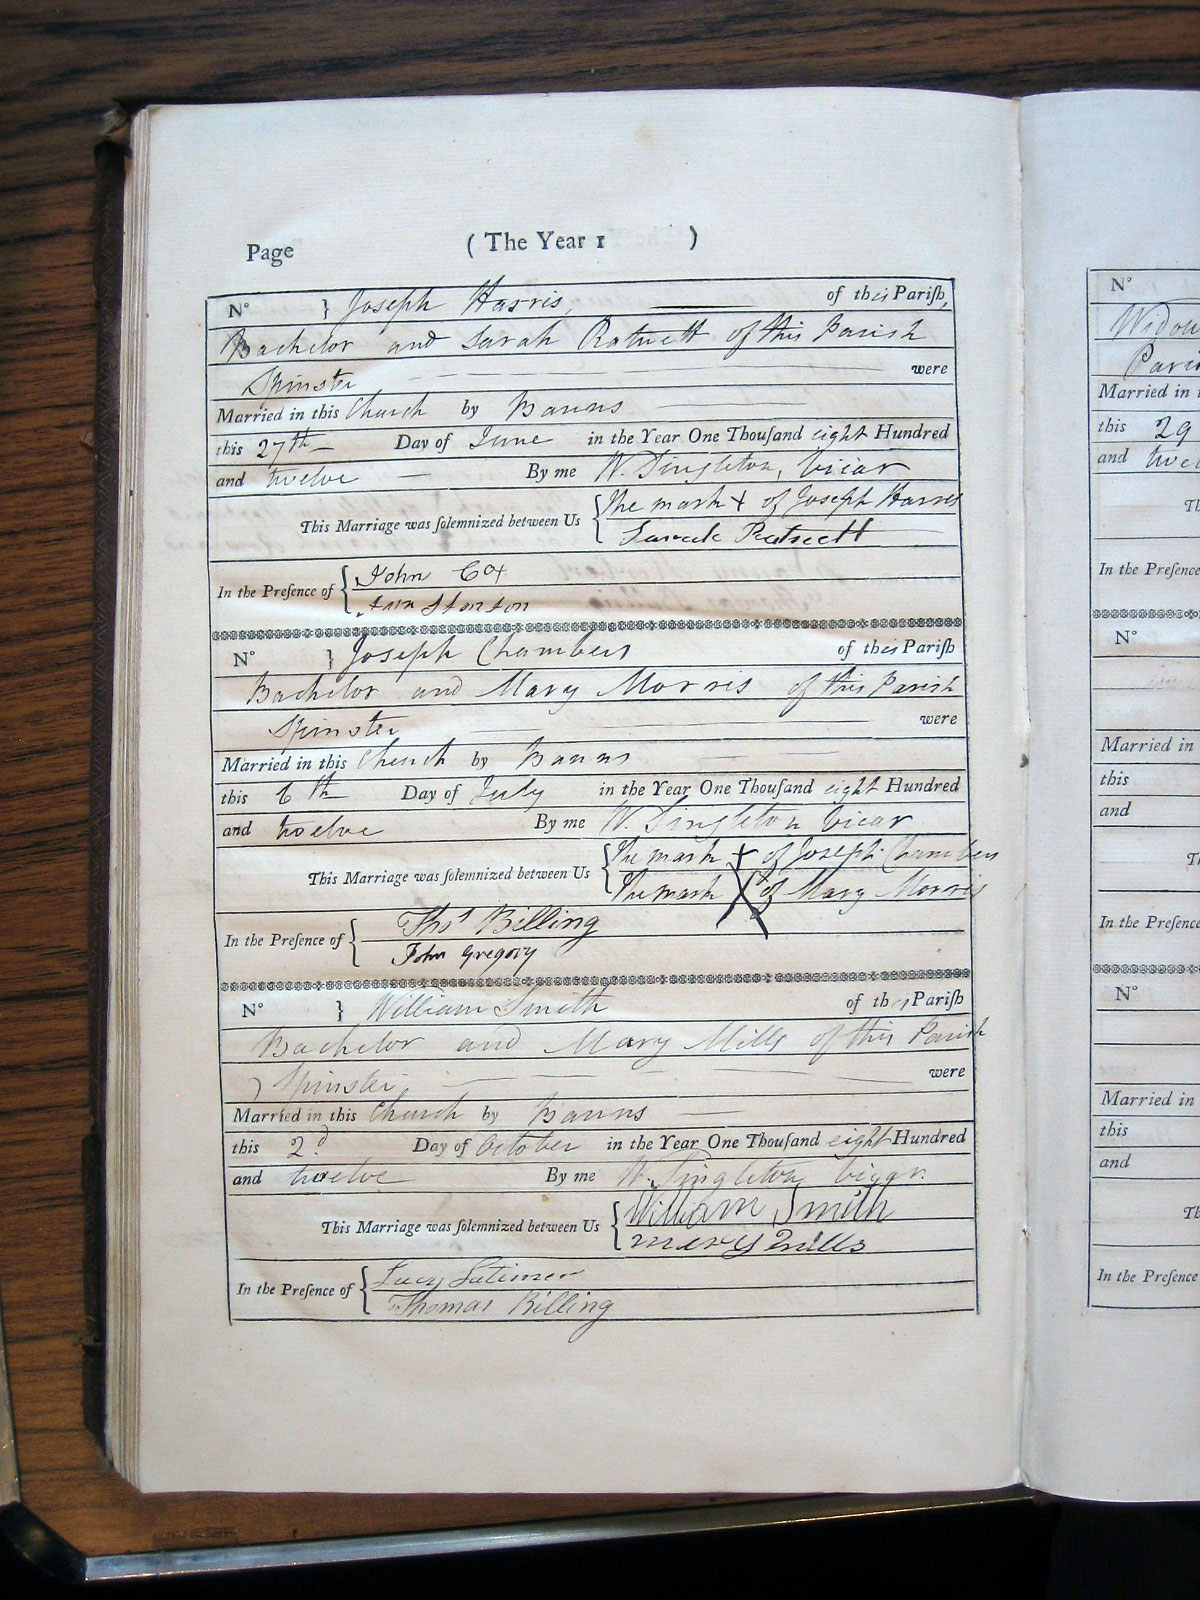 Page (The Year 1 )
No } Joseph Harris, of this Pariſh,
Bachelor and Sarah Ratnett of this Parish
Spinster were
Married in this Church by Banns
this 27th Day of June in the Year One Thouſand eight Hundred
and twelve By me W. Singleton, Vicar
This Marriage was ſolemnized between Us { The mark + of Joseph Harris
Sarah Ratnett
In the Preſence of { John Cox
Ann Stanton
No } Joseph Chambers of this Pariſh
Bachelor and Mary Morris of this Parish
Spinster were
Married in this Church by Banns
this 6th Day of July in the Year One Thouſand eight Hundred
and twelve By me W. Singleton Vicar
This Marriage was ſolemnized between Us { The mark + of Joseph Chambers
The mark X of Mary Morris
In the Preſence of { Thos Billing
John Gregory
No } William Smith of this Pariſh
Bachelor and Mary Mills of this Parish
Spinster were
Married in this Church by Banns
this 2d Day of October in the Year One Thouſand eight Hundred
and twelve By me W. Singleton Vicar.
This Marriage was ſolemnized between Us { William Smith
mary mills
In the Preſence of { Lucy Latimer
Thomas Billing
No
Married in
this 29
and
In the Preſence
No
Married in
this
and
In the Preſence
No
Married in
this
and
In the Preſence